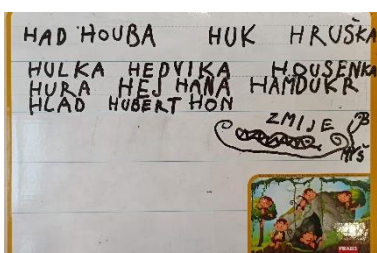 HAD HOUBA HUK HRUŠKA
HULKA HEDVIKA HOUSENKA
HURA HEJ HANA HAMDUKR
HLAD HUBERT HON
ZMIJE